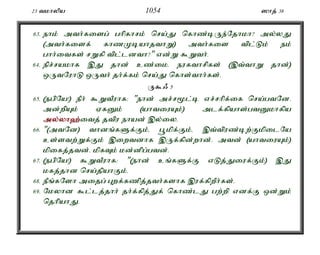 23 வமாலிய 1054 ஸாத் 38
63. நாம் அவர்களைப் பரிகாசம் செய்து கொண்டிருந்தோமா? அல்லது
(அவர்களைக் காணமுடியாதவாறு) அவர்களை விட்டும் நம்
பார்வைகள் சறுகி விட்டனவா?" என்று கூறுவர்.
64. நிச்சயமாக இது தான் உண்மை. நரகவாசிகள் (இவ்வாறு தான்)
ஒருவரோடு ஒருவர் தர்க்கம் செய்து கொள்வார்கள்.
ருகூஃ 5
65. (நபியே) நீர் கூறுவீராக: "நான் அச்சமூட்டி எச்சரிக்கை செய்பவனே.
அன்றியும் ஏகனும் (யாவரையும்) அடக்கியாள்பவனுமாகிய
அல்லாஹ்வைத் தவிர நாயன் இல்லை.
66. "(அவனே) வானங்களுக்கும், பூமிக்கும், இவ்விரண்டிற்குமிடையே
உள்ளவற்றுக்கும் இறைவனாக இருக்கின்றான். அவன் (யாவரையும்)
மிகைத்தவன். மிகவும் மன்னிப்பவன்.
67. (நபியே) கூறுவீராக: "(நான் உங்களுக்கு எடுத்துரைக்கும்) இது
மகத்தான செய்தியாகும்.
68. நீங்களோ அதைப் புறக்கணித்தவர்களாக இரக்கிறீர்கள்.
69. மேலான கூட்டத்தார் தர்க்கித்துக் கொண்டது பற்றி எனக்கு ஒன்றும்
தெரியாது.